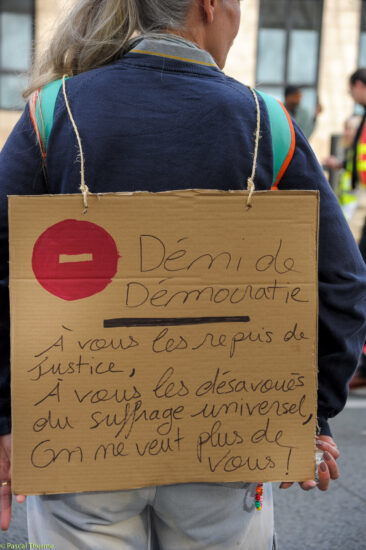 Démi de
Démocratie
À vous les repris de
justice,
À vous les désavoués
du suffrage universel,
On ne veut plus de
vous !
© Pascal Thermo